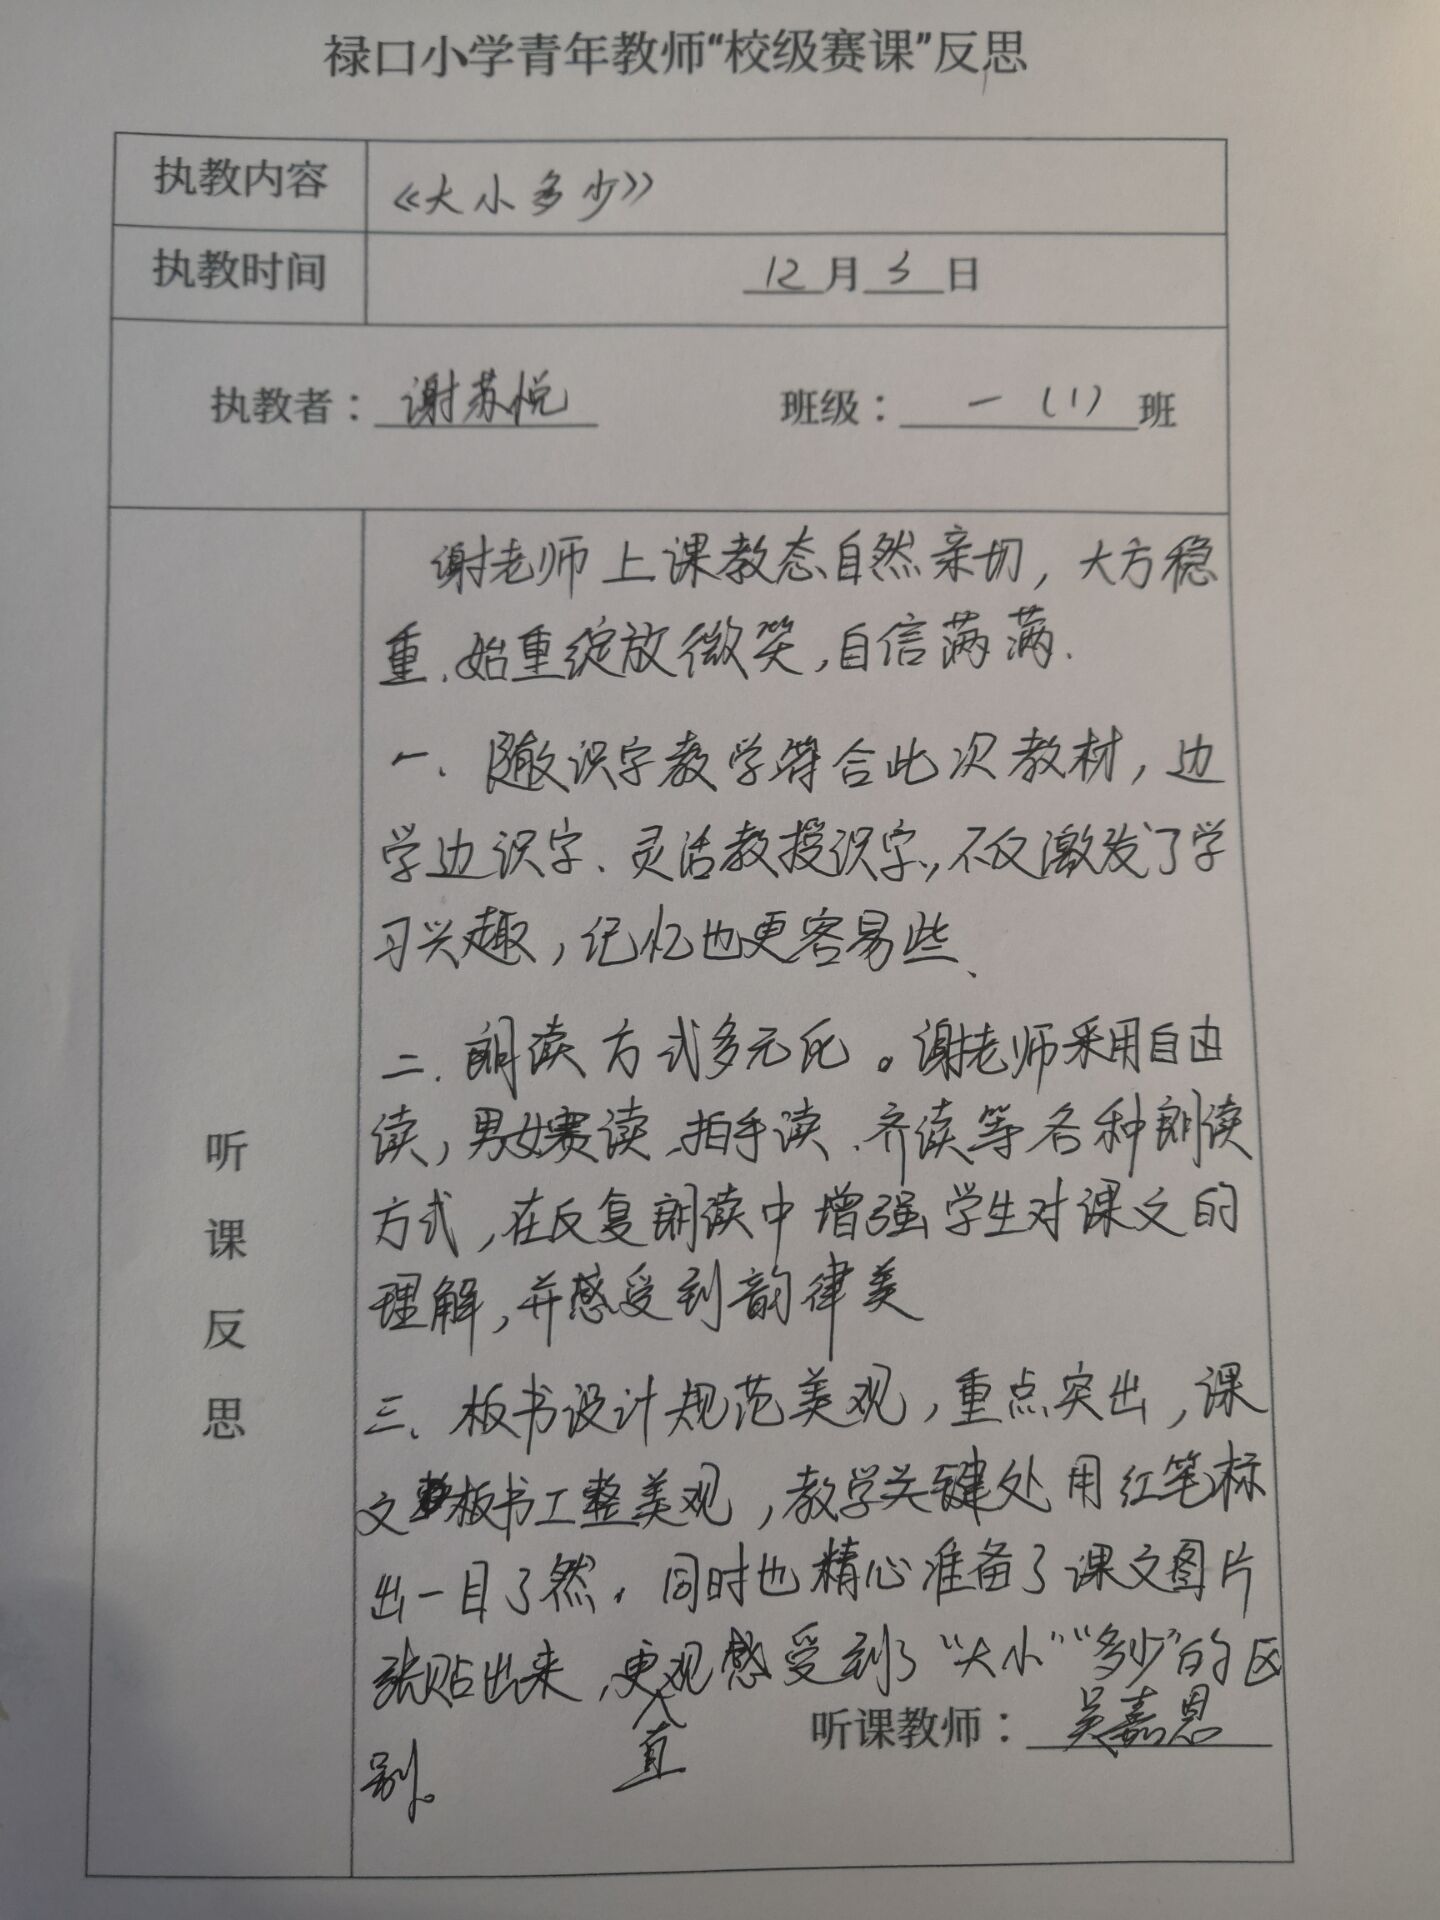 禄口小学青年教师“校级赛课”反思
执教内容
《大小多少》
执教时间
12月3日
执教者：谢苏悦 班级：一（1）班
听课反思
谢老师上课教态自然亲切，大方稳
重、始重绽放微笑，自信满满.
一、随文识字教学符合此次教材，边
学边识字、灵活教授识字，不仅激发了学
习兴趣，记忆也更容易些、
二、朗读方式多元化。谢老师采用自由
读，男女赛读、拍手读、齐读等各种朗读
方式，在反复朗读中增强学生对课文的
理解，并感受到韵律美
三、板书设计规范美观，重点突出，课
文板书工整美观，教学关键处用红笔标
出一目了然。同时也精心准备了课文图片
张贴出来，更直观感受到了“大小”“多少”的区
别。
听课教师：吴嘉恩